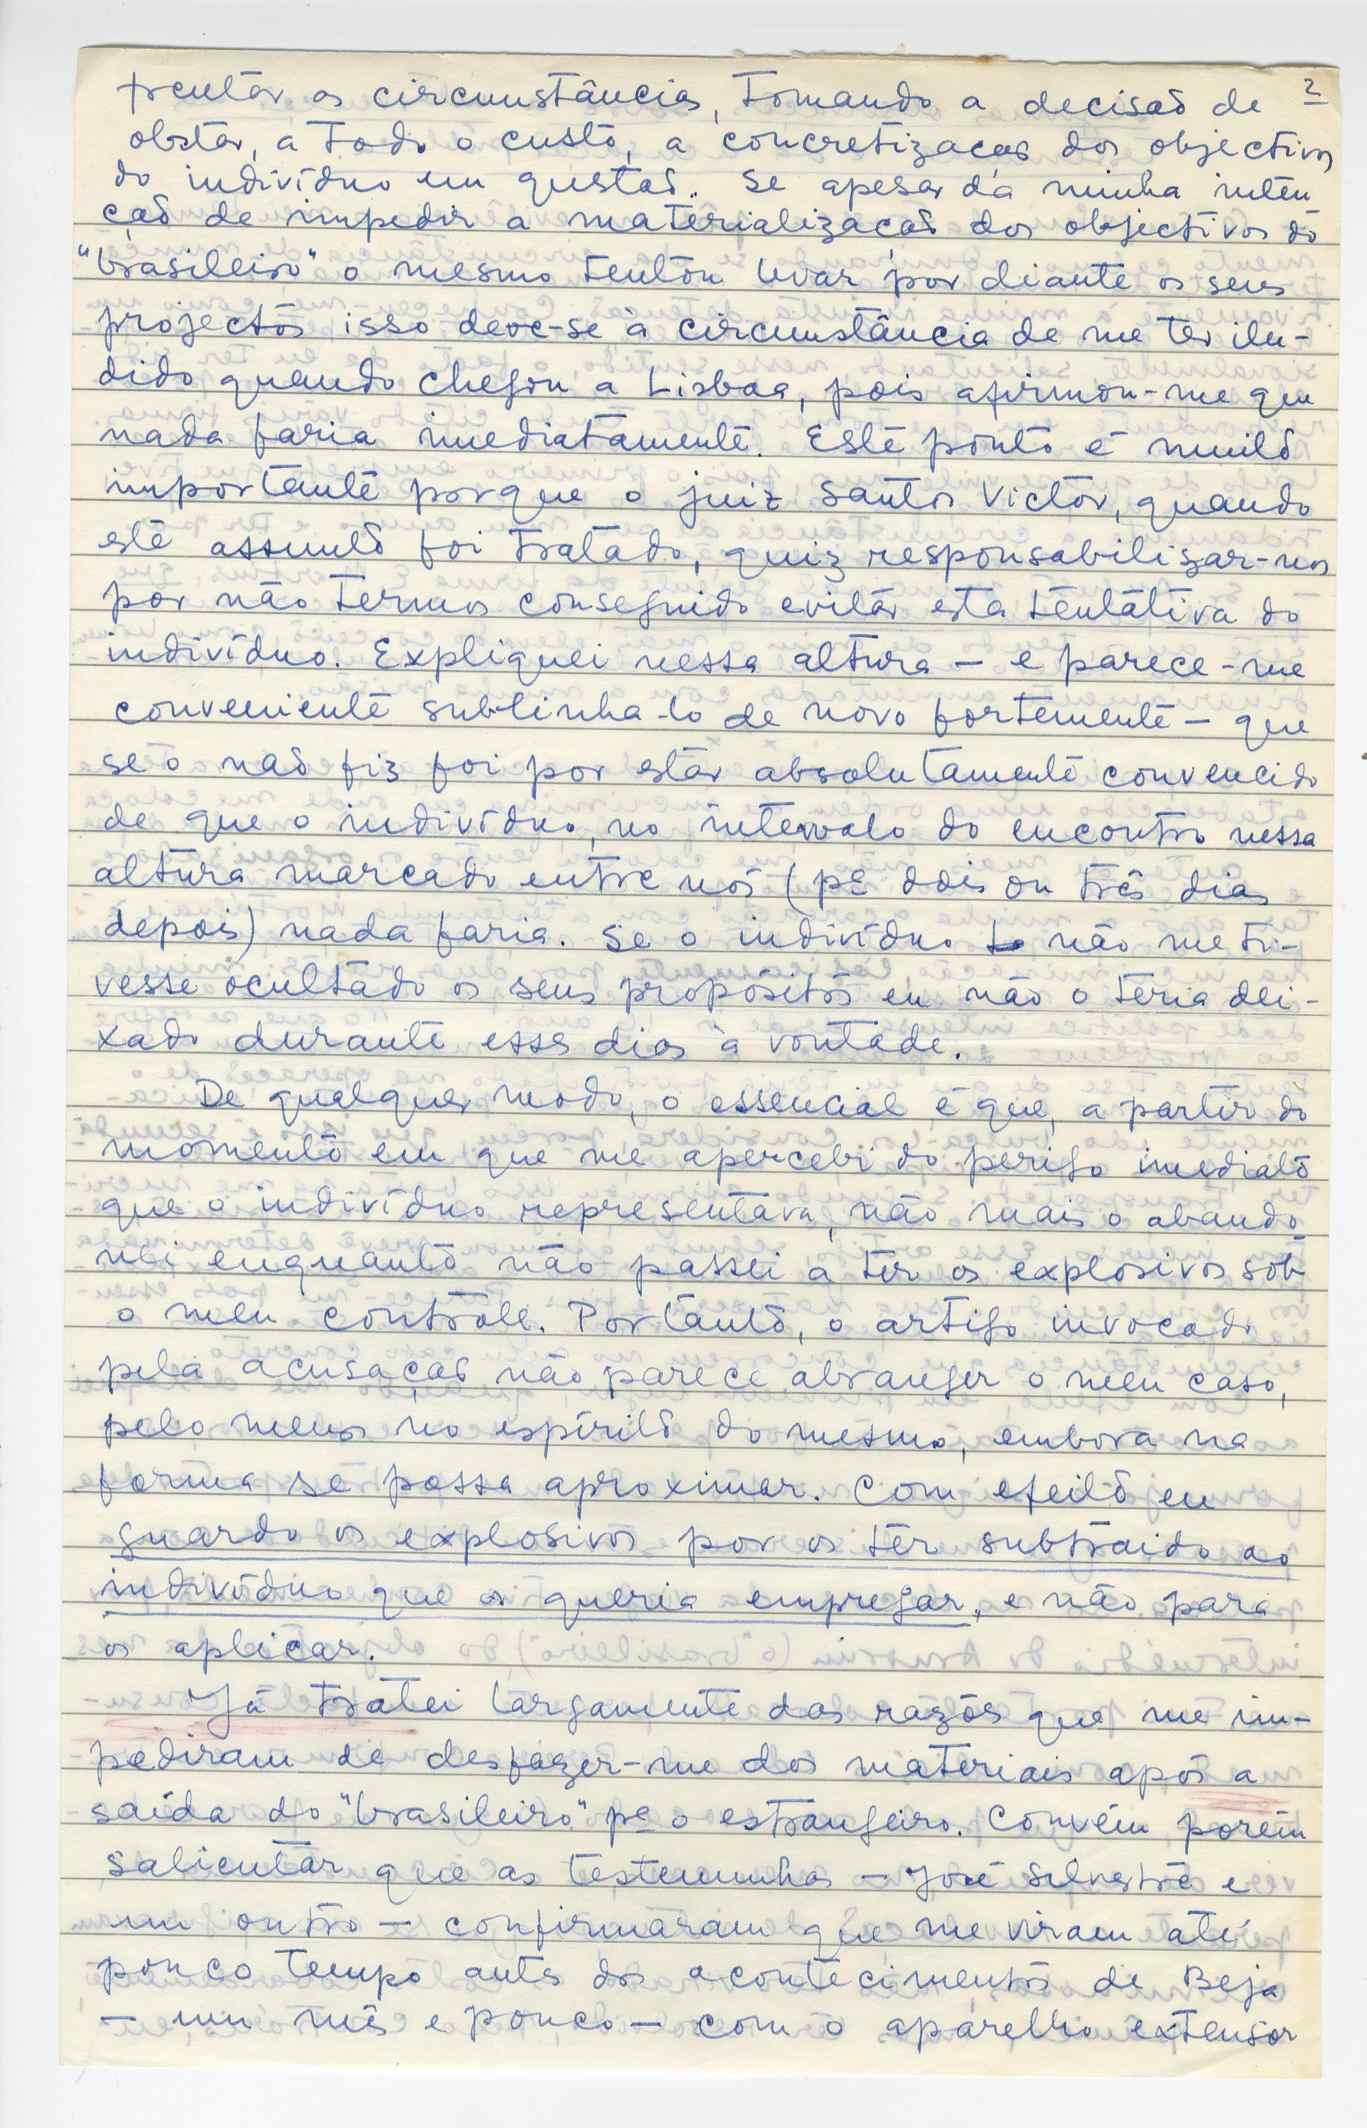 2
as circunstâncias, tomando a decisão de
obstar, a todo o custo, a concretização dos objectivos
do indivíduo em questão. Se apesar da minha inten
ção de impedir a materialização dos objectivos do
"brasileiro" o mesmo tentou levar por diante os seus
projectos isso deve-se à circunstância de me ter ilu-
dido quando chegou a Lisboa, pois afirmou-me que
nada faria imediatamente. Este ponto é muito
importante porque o juiz Santos Victor, quando
este assunto foi tratado, quiz responsabilizar-nos
por não termos conseguido evitar esta tentativa do
indivíduo. Expliquei nessa altura – e parece-me
conveniente sublinha-lo de novo fortemente – que
se o não fiz foi por estar absolutamente convencido
de que o indivíduo, no intervalo do encontro nessa
altura marcado entre nós (pª dois ou três dias
depois) nada faria. Se o indivíduo não me ti-
vesse ocultado os seus propósitos eu não o teria dei-
xado durante esses dias à vontade.
De qualquer modo, o essencial é que, a partir do
momento em que me apercebi do perigo imediato
que o indivíduo representava, não mais o abando
nei enquanto não passei a ter os explosivos sob
o meu contrôle. Portanto, o artigo invocado
pela acusação não parece abranger o meu caso,
pelo menos no espírito do mesmo, embora na
forma se possa aproximar. Com efeito eu
guardo os explosivos por os ter subtraido ao
indivíduo que os queria empregar, e não para
os aplicar.
Já tratei largamente das razões que me im-
pediram de desfazer-me dos materiais após a
saída do "brasileiro" pª o estrangeiro. Convém porém
salientar que as testemunhas – José Silvestre e
um outro – confirmaram que me viram até
pouco tempo antes dos acontecimentos de Beja
– um mês e pouco – com o aparelho extensor